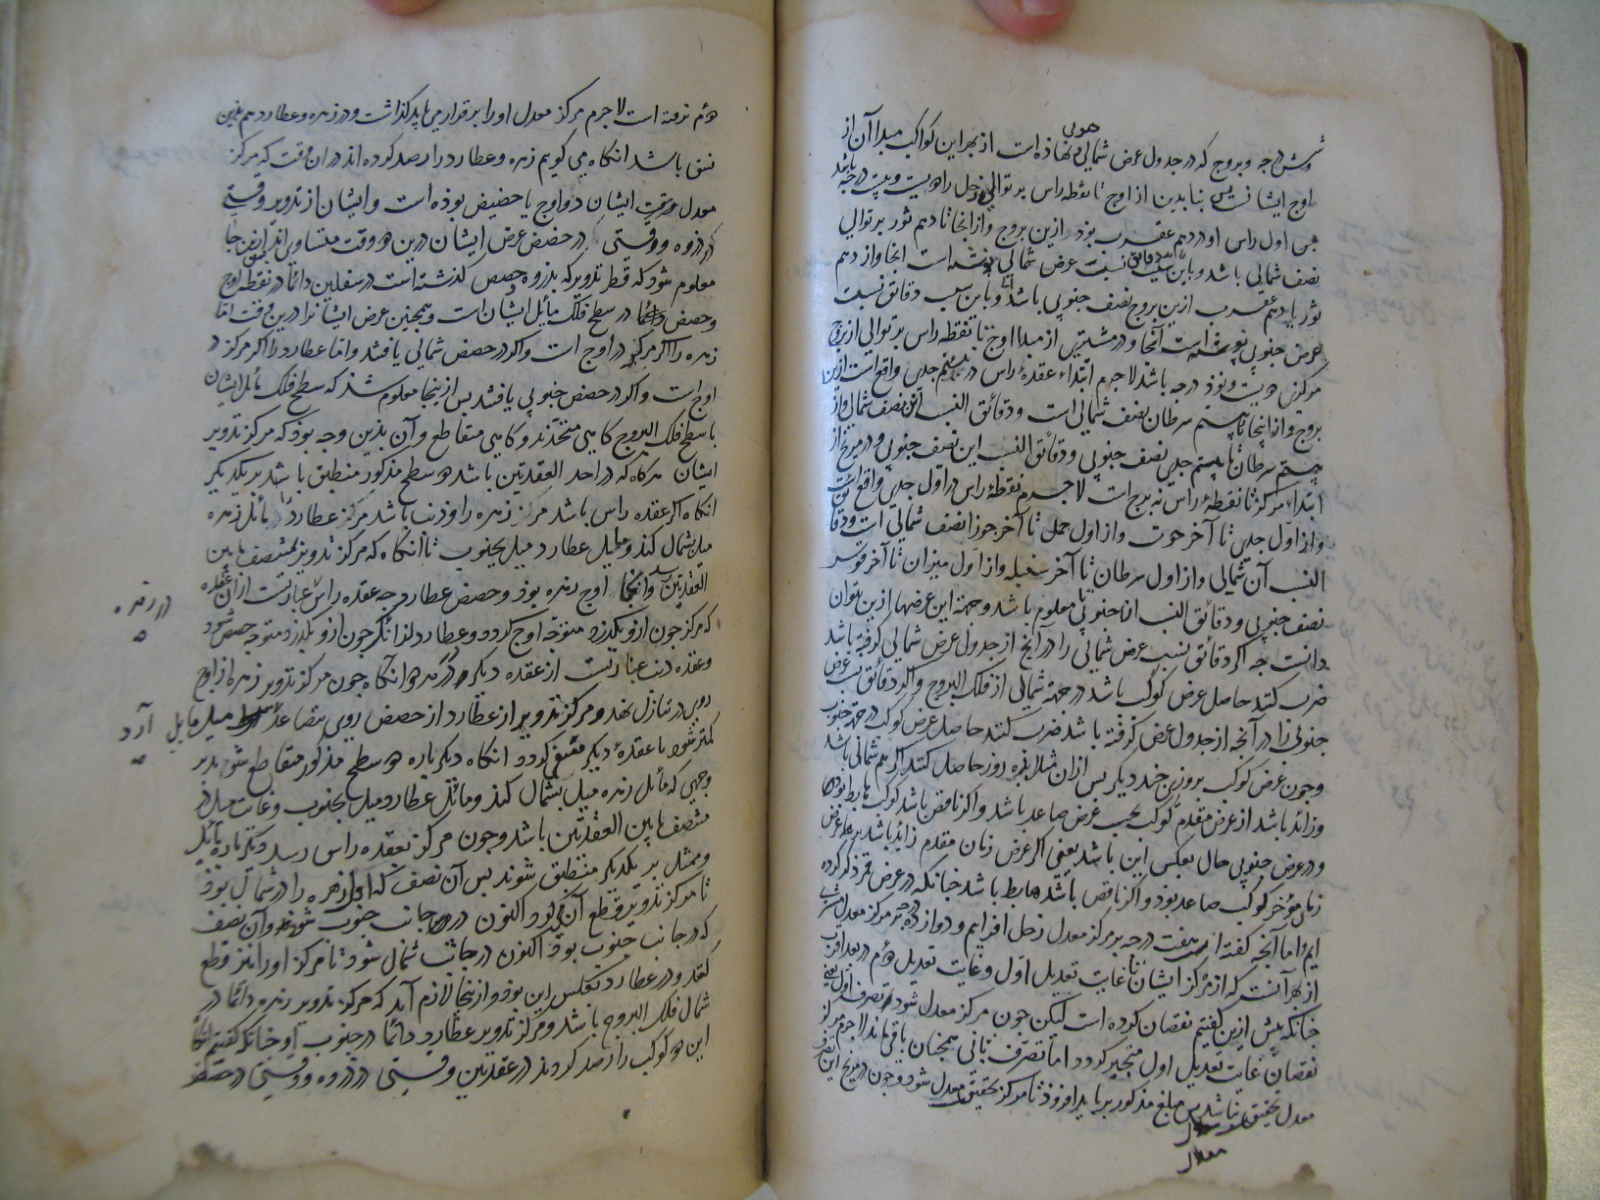 شش درجه و بروج که در جدول عرض شمالی نهاذه است از بهر این کواکب مبدا آن از
اوج ایشان نیست بنابرین از اوج تا نقطه راس بر توالی زحل را دویست و بیست درجه باشد
پس اول راس او در دهم عقرب بوذ ازین بروج و از انجا تا دهم ثور بر توالی
نصف شمالی باشد و باین سبب دقائق نسبت عرض شمالی نوشته است انجا و از دهم
ثور تا دهم عقرب ازین بروج نصف جنوبی باشد و باین سبب دقائق نسبت
عرض جنوبی نوشته است آنجا و در مشتری از مبدا اوج تا نقطه راس بر توالی از بروج
مرکزش دویست و نوذ درجه باشد لاجرم ابتداء عقدهٔ راس در بیستم جدی واقع است ازین
بروج و از اینجا تا بیستم سرطان نصف شمالی است و دقائق النسب این نصف شمالی و از
بیستم سرطان تا بیستم جدی نصف جنوبی و دقائق النسب این نصف جنوبی و در مریخ از
ابتداء مرکز تا نقطهٔ راس نه برج است لاجرم نقطهٔ راس در اول جدی واقع است
و از اول جدی تا آخر حوت و از اول حمل تا آخر جوزا نصف شمالی است و دقائق
النسب آن شمالی و از اول سرطان تا آخر سنبله و از اول میزان تا آخر قوس
نصف جنوبی و دقائق النسب انجا جنوبی معلوم باشد و جهة این عرضها ازین توان
دانست چه اگر دقائق نسب عرض شمالی را در انچ از جدول عرض شمالی گرفته باشد
ضرب کنند حاصل عرض کوکب باشد در جهة شمالی از فلک البروج و اگر دقائق نسب عرض
جنوبی را در آنچه از جدول عرض گرفته باشد ضرب کنند حاصل عرض کوکب در جهة جنوب
و چون عرض کوکب بروزی چند دیگر پس ازان مثلا بده روز حاصل کنند اگر هم شمالی باشد
و زائد باشد از عرض مقدم کوکب بحسب عرض صاعد باشد و اگر ناقص باشد کوکب هابط بوذ
و در عرض جنوبی حال بعکس این باشد یعنی اگر عرض زمان مقدم زائد باشد بر عرض
زمان مؤخر کوکب صاعد بوذ و اگر ناقص باشد هابط باشد چنانکه در عرض قمر ذکر کرده
ایم و اما آنچه گفته است هفت درجه بر مرکز معدل زحل افزایم و دوازده درجه بر مرکز معدل مشتری
از بهر آنست که از مرکز ایشان غایت تعدیل اول و غایت تعدیل دوم در بعد اقرب
چنانکه پیش ازین گفتیم نقصان کرده است لیکن چون مرکز معدل شود تصرف اول یعنی
نقصان غایت تعدیل اول منجبر گردد اما تصرف ثانی همچنان باقی ماند لاجرم مرکز
معدل تحقیق نباشد پس مبلغ مذکور بر باید افزوذ تا مرکز تحقیق معدل شود و چون در مریخ این تصرف
معدل
دوم نرفته است لاجرم مرکز معدل او را برقرار می باید گذاشت و در زهره و عطارد هم برین
نسق باشد انگاه می گویم زهره و عطارد را رصد کرده اند در ان وقت که مرکز
معدل ایشان در اوج یا حضیض بوذه است و ایشان از تدویر وقتی
در ذروه و وقتی در حضیض عرض ایشان درین دو وقت متساوی ازین جا
معلوم شود که قطر تدویر که بذروه و حضیض گذشته است در سفلیین دائما در نقطه اوج
و حضیض در سطح فلک مائل ایشان است و همچنین عرض ایشان را درین وقت اما
زهره را اگر مرکز در اوج است و اگر در حضیض شمالی یافتند و اما عطارد را اگر مرکز در
اوج است و اگر در حضیض جنوبی یافتند پس از ینجا معلوم شد که سطح فلک مائل ایشان
با سطح فلک البروج گاهی متحدند و گاهی متقاطع و آن بذین وجه بوذ که مرکز تدویر
ایشان هرگاه که در احد العقدتین باشد دو سطح مذکور منطبق باشد بر یکدیگر
انگاه اگر عقده راس باشد مرکز زهره را و ذنب باشد مرکز عطارد را مائل زهره
میل بشمال کند و مایل عطارد میل بجنوب تا انگاه که مرکز تدویر بمنتصف مابین
العقدتین رسد و انجا اوج زهره بوذ و حضیض عطارد چه عقده راس عبارتست ازان عقده
که مرکز چون ازو بگذرد متوجه اوج گردد و عطارد را ذنب چون ازو بگذرد متوجه حضیض شود
و عقده ذنب عبارتست از عقده دیگر در هر دو انگاه چون مرکز تدویر زهره از اوج
روی در تنازل نهد و مرکز تدویر از عطارد از حضیض روی بتصاعد میل مایل
کمتر شود تا عقدهٔ دیگر منتهی گردد انگاه دیگر باره دو سطح مذکور متقاطع شود بذین
وجهی که مائل زهره میل بشمال کند و مائل عطارد میل بجنوب و غایت میل در
منتصف مابین العقدتین باشد و چون مرکز بعقده راس رسد دیگر باره مائل
و ممثل بر یکدیگر منطبق شوند پس آن نصف که از زهره را در شمال بوذ
تا مرکز تدویر قطع آن می کرد اکنون در جانب جنوب شود و آن نصف
که در جانب جنوب بوذ اکنون در جانب شمال شود تا مرکز او را نیز قطع
کند و در عطارد بعکس این بوذ و از ینجا لازم آید که مرکز تدویر زهره دائما در
شمال فلک البروج باشد و مرکز تدویر عطارد دائما در جنوب او چنانکه گفتیم انگاه
این دو کوکب را رصد کردند در عقدتین وقتی در ذروه و وقتی در حضیض
در زهره
آرد